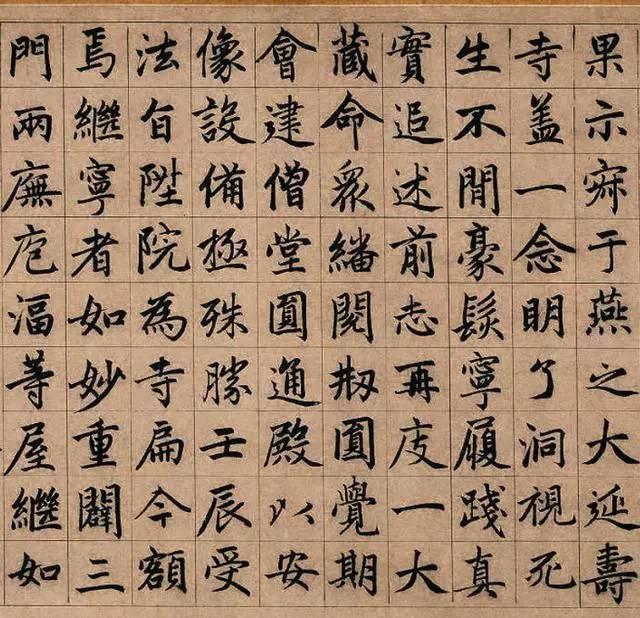 果示寂于燕之大延壽
寺盖一念明了洞視死
生不間豪髮寧履踐真
實追述前志再庋一大
藏命衆繙閱刱圓覺期
會建僧堂圓通殿以安
像設備極殊勝壬辰受
法旨陞院為寺扁今額
焉繼寧者如妙重闢三
門兩廡庖湢等屋繼如